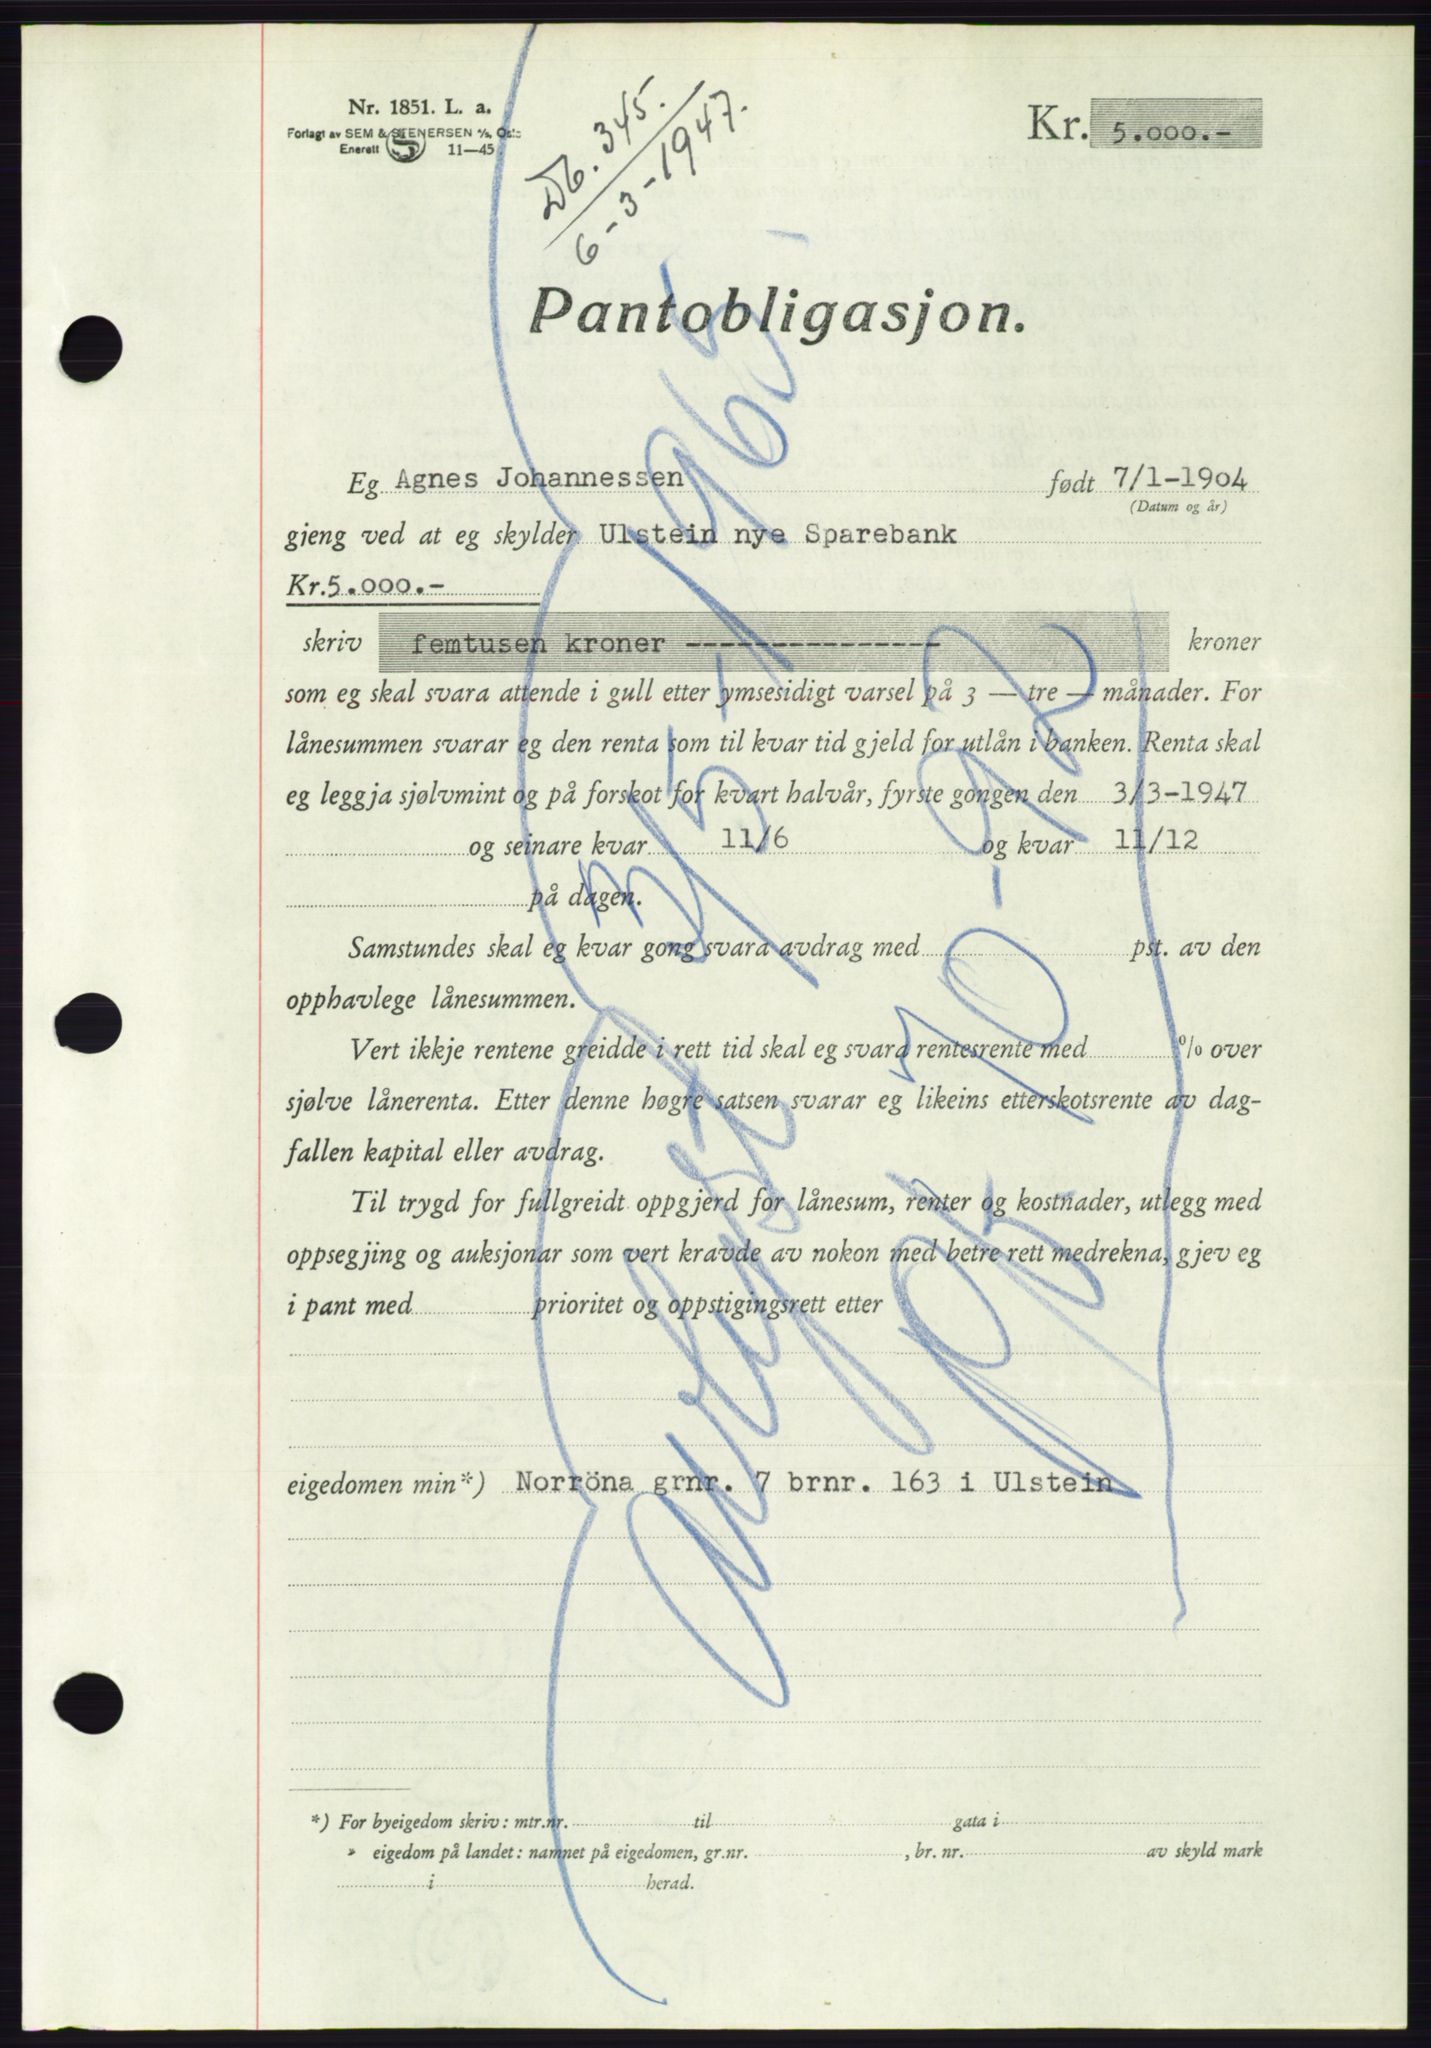 Nr. 1851. L. a.
Forlagt av SEM & STENERSEN A/S, Oslo
Enerett 11—45
Db. 345.
6-3-1947.
Kr. 5.000.-
Pantobligasjon.
Eg Agnes Johannessen født 7/1-1904
(Datum og år)
gjeng ved at eg skylder Ulstein nye Sparebank
Kr.5.000.-
skriv femtusen kroner --------------- kroner
som eg skal svara attende i gull etter ymsesidigt varsel på 3 — tre — månader. For
lånesummen svarar eg den renta som til kvar tid gjeld for utlån i banken. Renta skal
eg leggja sjølvmint og på forskot for kvart halvår, fyrste gongen den 3/3-1947
og seinare kvar 11/6 og kvar 11/12
på dagen.
Samstundes skal eg kvar gong svara avdrag med pst. av den
opphavlege lånesummen.
Vert ikkje rentene greidde i rett tid skal eg svara rentesrente med % over
sjølve lånerenta. Etter denne høgre satsen svarar eg likeins etterskotsrente av dag-
fallen kapital eller avdrag.
Til trygd for fullgreidt oppgjerd for lånesum, renter og kostnader, utlegg med
oppsegjing og auksjonar som vert kravde av nokon med betre rett medrekna, gjev eg
i pant med prioritet og oppstigingsrett etter
eigedomen min*) Norröna grnr. 7 brnr. 163 i Ulstein
*) For byeigedom skriv: mtr.nr. til gata i
" eigedom på landet: namnet på eigedomen, gr.nr. , br. nr. av skyld mark
i herad.